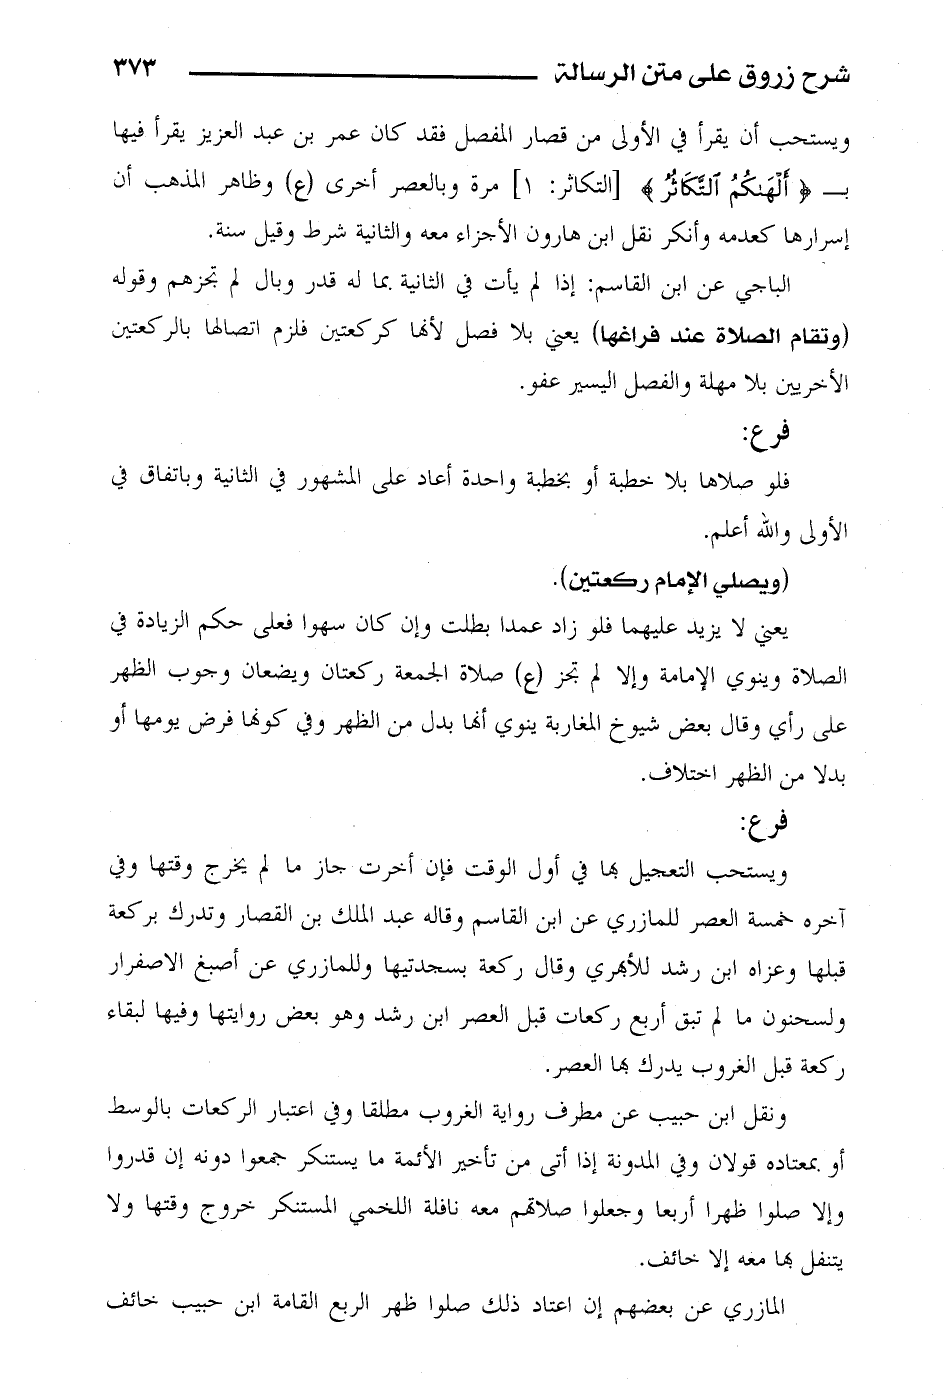 شرح زروق على متن الرسالة ٣٧٣
ويستحب أن يقرأ في الأولى من قصار المفصل فقد كان عمر بن عبد العزيز يقرأ فيها
بـ ﴿ أَلْهَىٰكُمُ ٱلتَّكَاثُرُ ﴾ [التكاثر: ١] مرة وبالعصر أخرى (ع) وظاهر المذهب أن
إسرارها كعدمه وأنكر نقل ابن هارون الأجزاء معه والثانية شرط وقيل سنة.
الباجي عن ابن القاسم: إذا لم يأت في الثانية بما له قدر وبال لم تجزهم وقوله
(وتقام الصلاة عند فراغها) يعني بلا فصل لأنها كركعتين فلزم اتصالها بالركعتين
الأخريين بلا مهلة والفصل اليسير عفو.
فرع:
فلو صلاها بلا خطبة أو بخطبة واحدة أعاد على المشهور في الثانية وباتفاق في
الأولى والله أعلم.
(ويصلي الإمام ركعتين).
يعني لا يزيد عليهما فلو زاد عمدا بطلت وإن كان سهوا فعلى حكم الزيادة في
الصلاة وينوي الإمامة وإلا لم تجز (ع) صلاة الجمعة ركعتان ويضعان وجوب الظهر
على رأي وقال بعض شيوخ المغاربة ينوي أنها بدل من الظهر وفي كونها فرض يومها أو
بدلا من الظهر اختلاف.
فرع:
ويستحب التعجيل بها في أول الوقت فإن أخرت جاز ما لم يخرج وقتها وفي
آخره خمسة العصر للمازري عن ابن القاسم وقاله عبد الملك بن القصار وتدرك بركعة
قبلها وعزاه ابن رشد للأبهري وقال ركعة بسجدتيها وللمازري عن أصبغ الاصفرار
ولسحنون ما لم تبق أربع ركعات قبل العصر ابن رشد وهو بعض روايتها وفيها لبقاء
ركعة قبل الغروب يدرك بها العصر.
ونقل ابن حبيب عن مطرف رواية الغروب مطلقا وفي اعتبار الركعات بالوسط
أو بمعتاده قولان وفي المدونة إذا أتى من تأخير الأئمة ما يستنكر جمعوا دونه إن قدروا
وإلا صلوا ظهرا أربعا وجعلوا صلاتهم معه نافلة اللخمي المستنكر خروج وقتها ولا
يتنفل بها معه إلا خائف.
المازري عن بعضهم إن اعتاد ذلك صلوا ظهر الربع القامة ابن حبيب خائف